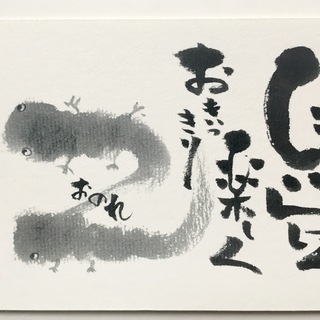 おもいっきり
楽しく
おのれ